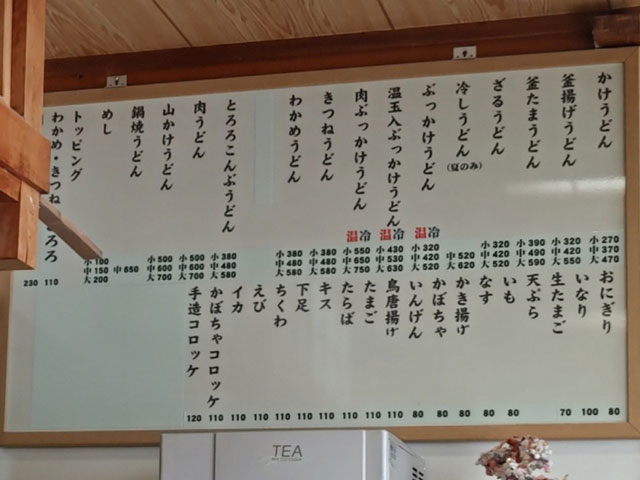 かけうどん
小270
中370
大470
釜揚げうどん
小320
中420
大550
釜たまうどん
小390
中490
大590
ざるうどん
小320
中420
大520
冷しうどん(夏のみ)
中520
大620
ぶっかけうどん
温冷
小320
中420
大520
温玉入ぶっかけうどん
温冷
小430
中530
大630
肉ぶっかけうどん
温冷
小550
中650
大750
きつねうどん
小380
中480
大580
わかめうどん
小380
中480
大580
とろろこんぶうどん
小380
中480
大580
肉うどん
小500
中600
大700
山かけうどん
小500
中600
大700
鍋焼うどん
中650
めし
小100
中150
大200
トッピング
わかめ・きつね
ろろ
110
230
おにぎり
80
いなり
100
生たまご
70
天ぷら
いも
80
なす
80
かき揚げ
80
かぼちゃ
80
いんげん
80
鳥唐揚げ
110
たまご
110
たらば
110
キス
110
下足
110
ちくわ
110
えび
110
イカ
110
かぼちゃコロッケ
110
手造コロッケ
120
TEA